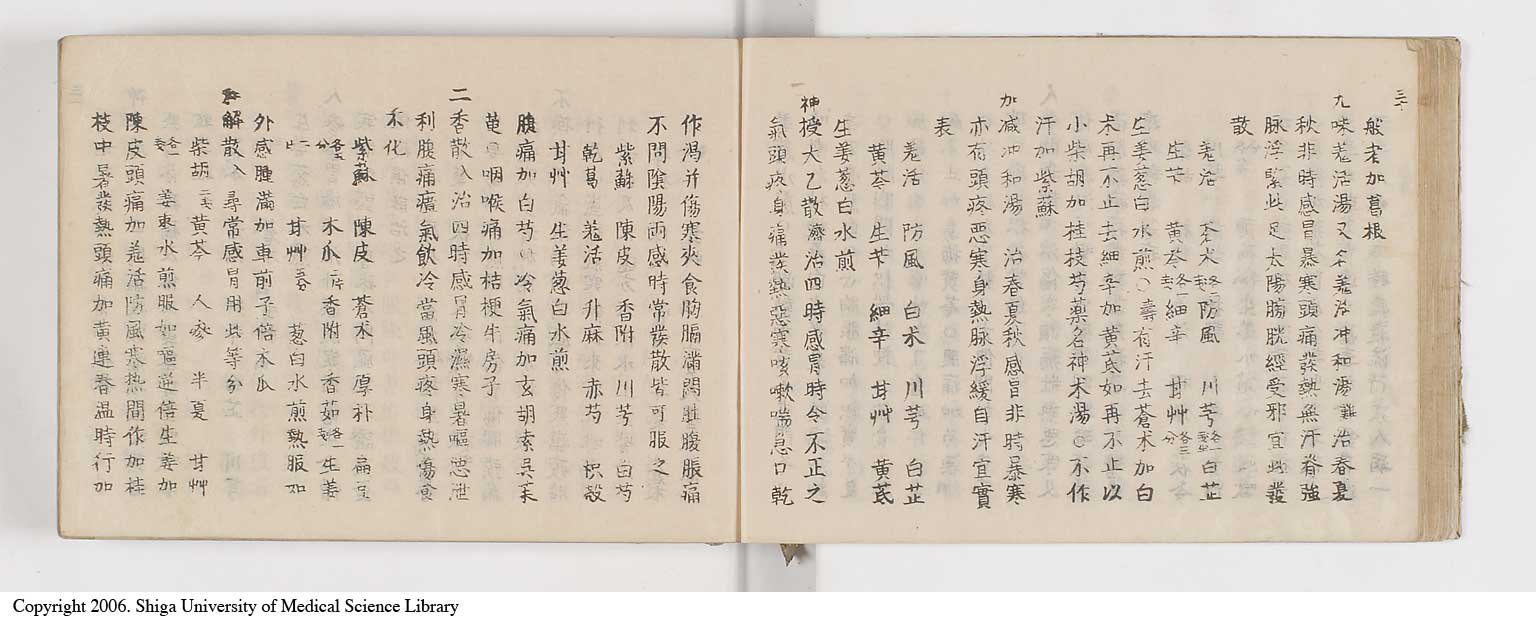 三十
般者加葛根
九味羌活湯又名羗活冲和湯 治春夏
秋非時感冒暴寒頭痛發熱無汗脊強
脉浮緊此足太陽膀胱經受邪宜此發
散
羌活 蒼朮 防風 川芎 白芷
生芐 黄芩 細辛 甘艸
生姜葱白水煎○ 有汗去蒼朮加白
朮再不止去細辛加黄芪如再不止以
小柴胡加桂枝芍薬名神朮湯○不作
汗加紫蘇
加减冲和湯 治春夏秋感冒非時暴寒
亦有頭疼惡寒身熱脉浮緩自汗宜實
表
羗活 防風 白朮 川芎 白芷
黄芩 生芐 細辛 甘艸 黄芪
生姜葱白水煎
神授太乙散 治四時感冒時令不正之
氣頭疼身痛發熱惡寒咳嗽喘急口乾
作渇并傷寒夾食胸膈滿悶肚腹脹痛
不問陰陽両感時常發散皆可服之
紫蘇 陳皮 香附 川芎 白芍
乾葛 羗活 升麻 赤芍 枳殻
甘艸 生姜葱白水煎
腹痛加白芍○冷氣痛加玄胡索呉茱
萸○咽喉痛加桔梗牛房子
二香散 治四時感冒冷濕寒暑嘔惡泄
利腹痛瘴氣飲冷當風頭疼身熱傷食
不化
紫蘇 陳皮 蒼朮 厚朴 扁豆
木瓜 香附 香茹 生姜
甘艸 葱白水煎熱服如
外感腫滿加車前子倍木瓜
解散 尋常感冒用此等分
柴胡 黄芩 人参 半夏 甘艸
姜棗水煎服如嘔逆倍生姜加
陳皮頭痛加羗活防風寒热間作加桂
枝中暑發熱頭痛加黄連春温時行加